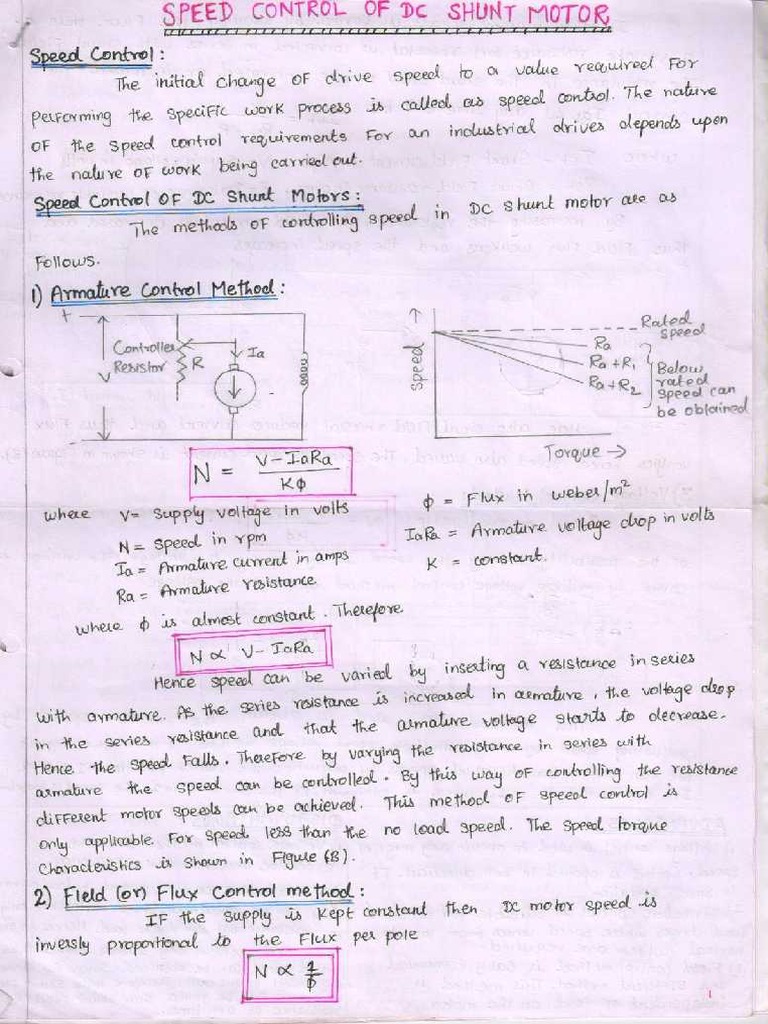 SPEED CONTROL OF DC SHUNT MOTOR
Speed Control:
The initial change of drive speed to a value required for
performing the specific work process is called as speed control. The nature
of the speed control requirements for an industrial drives depends upon
the nature of work being carried out.
Speed Control of DC Shunt Motors:
The methods of controlling speed in DC shunt motor are as
Follows.
1) Armature Control Method:
+
V
Controller
Resistor
R
Ia
-
↑
Speed
Rated
speed
Ra
Ra + R1
Ra + R2
Below
rated
speed can
be obtained
Torque →
N = V-IaRa / Kϕ
where V= supply voltage in volts
N = speed in rpm
Ia = Armature current in amps
Ra = Armature resistance
ϕ = Flux in weber/m²
IaRa = Armature voltage drop in volts
K = constant.
where ϕ is almost constant. Therefore
N ∝ V-IaRa
Hence speed can be varied by inserting a resistance in series
with armature. As the series resistance is increased in armature, the voltage drop
in the series resistance and that the armature voltage starts to decrease.
Hence the speed falls. Therefore by varying the resistance in series with
armature the speed can be controlled. By this way of controlling the resistance
different motor speeds can be achieved. This method of speed control is
only applicable. For speeds less than the no load speed. The speed torque
characteristics is shown in Figure (B).
2) Field (or) Flux Control method:
IF the supply is kept constant then DC motor speed is
inversly proportional to the Flux per pole
N ∝ 1/ϕ
1